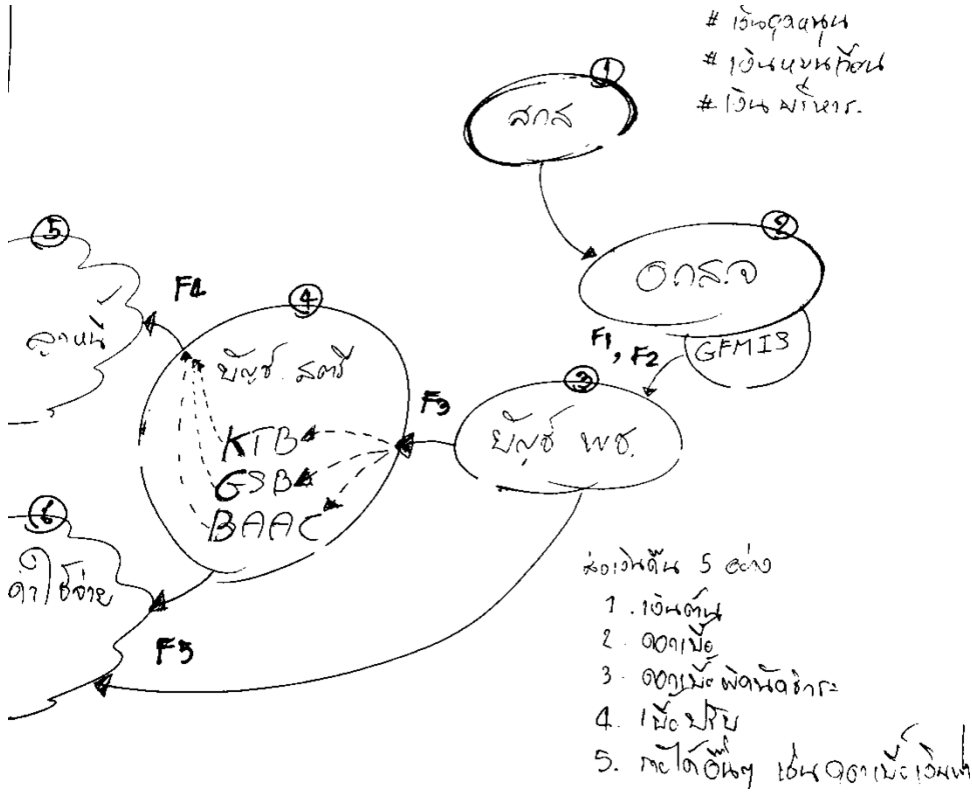 # เงินอุดหนุน
# เงินหมุนเวียน
# เงินบริหาร
1
สกส
2
อกส.จ
GFMIS
F1, F2
3
บัญชี พช.
F3
4
บัญชี สตรี
KTB
GSB
BAAC
F4
5
ลูกหนี้
6
ค่าใช้จ่าย
F5
ส่งเงินคืน 5 อย่าง
1. เงินต้น
2. ดอกเบี้ย
3. ดอกเบี้ยผิดนัดชำระ
4. เบี้ยปรับ
5. รายได้อื่นๆ เช่น ดอกเบี้ยเงินฝาก